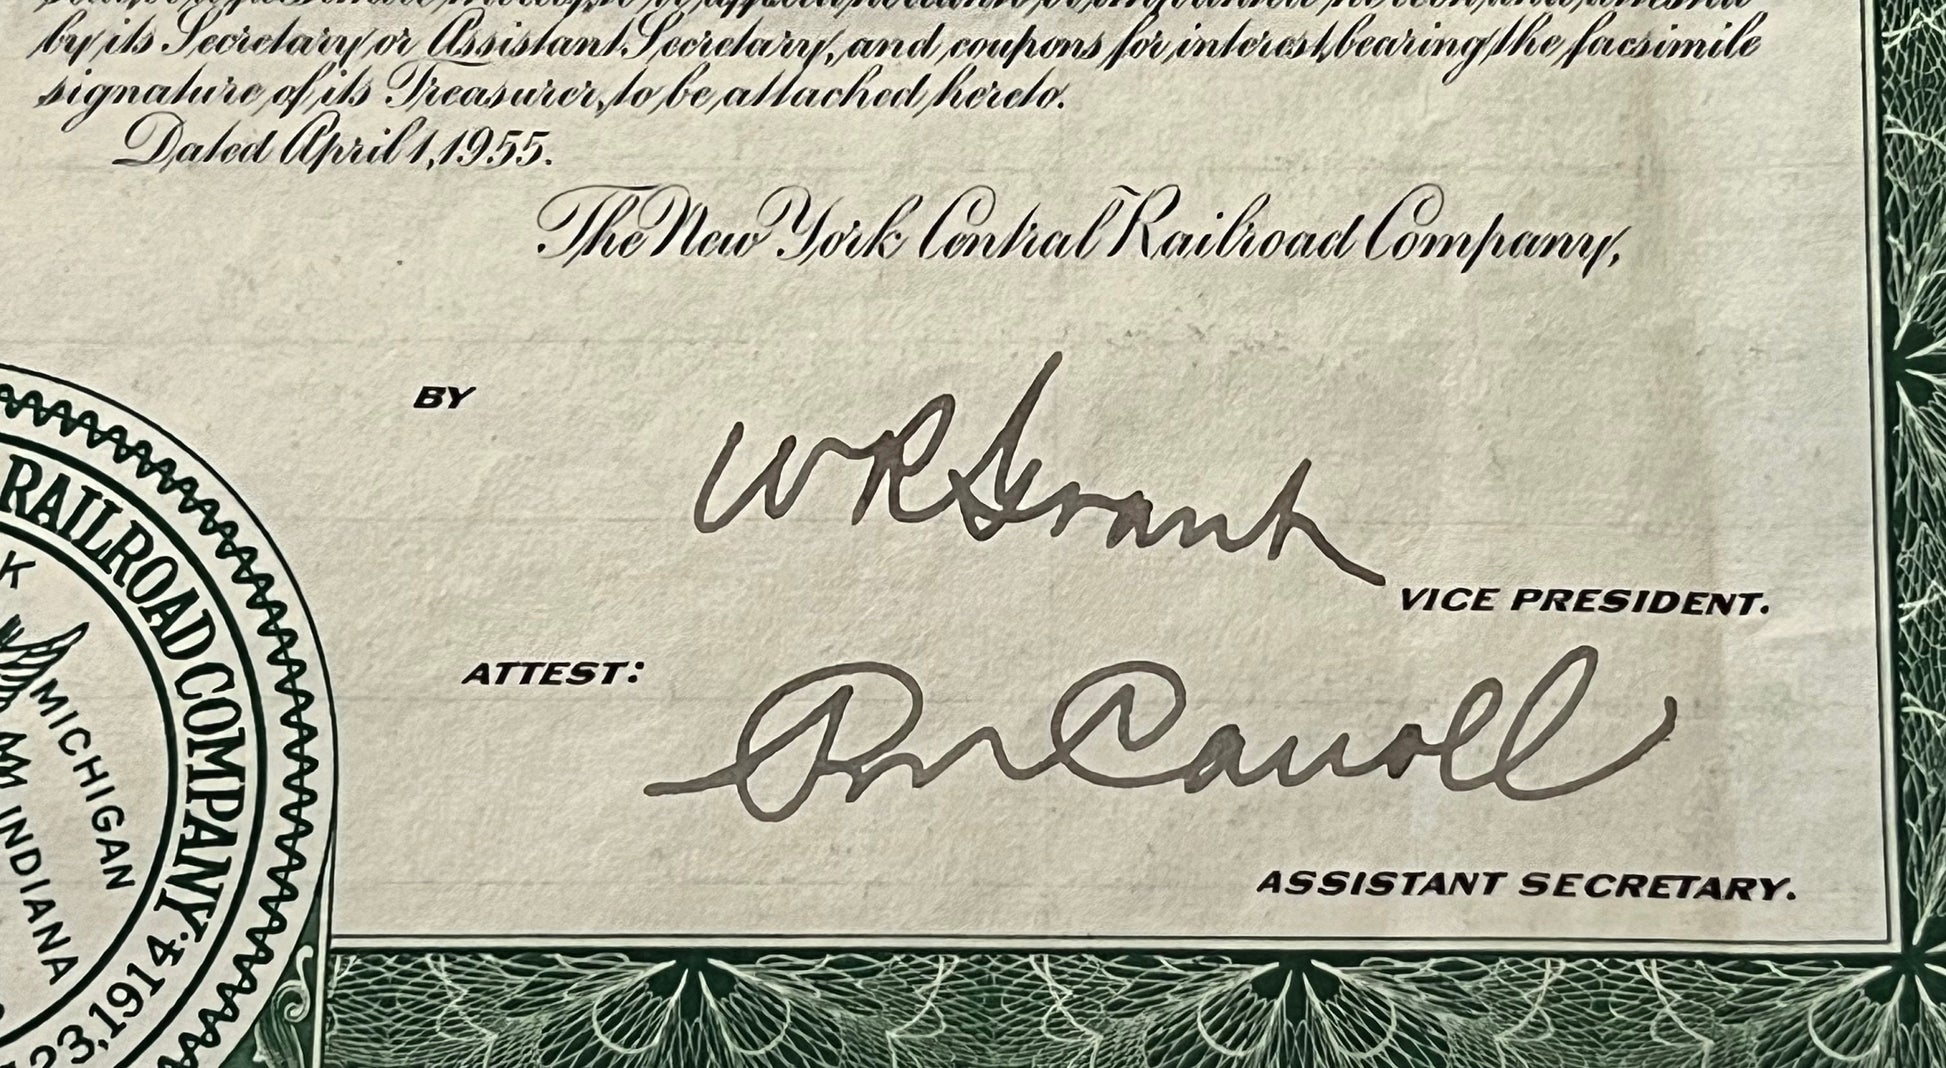 by its Secretary or Assistant Secretary, and coupons for interest, bearing the facsimile
signature of its Treasurer, to be attached hereto.
Dated April 1, 1955.
The New York Central Railroad Company,
BY
W R Grant
VICE PRESIDENT.
ATTEST:
Carroll
ASSISTANT SECRETARY.
RAILROAD COMPANY.
MICHIGAN
INDIANA
23, 1914.